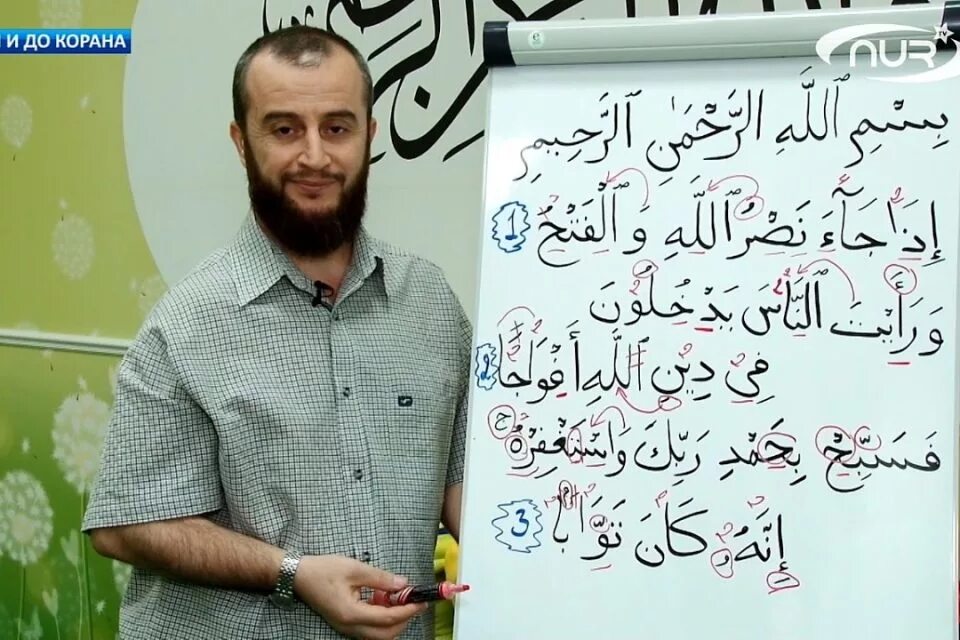 И ДО КОРАНА
NUR TV
بِسْمِ ٱللَّهِ ٱلرَّحْمَٰنِ ٱلرَّحِيمِ
إِذَا جَآءَ نَصْرُ ٱللَّهِ وَ ٱلْفَتْحُ 1
وَ رَأَيْتَ ٱلنَّاسَ يَدْخُلُونَ
فِي دِينِ ٱللَّهِ أَفْوَاجًا 2
فَسَبِّحْ بِحَمْدِ رَبِّكَ وَٱسْتَغْفِرْهُ
إِنَّهُ كَانَ تَوَّابًا 3